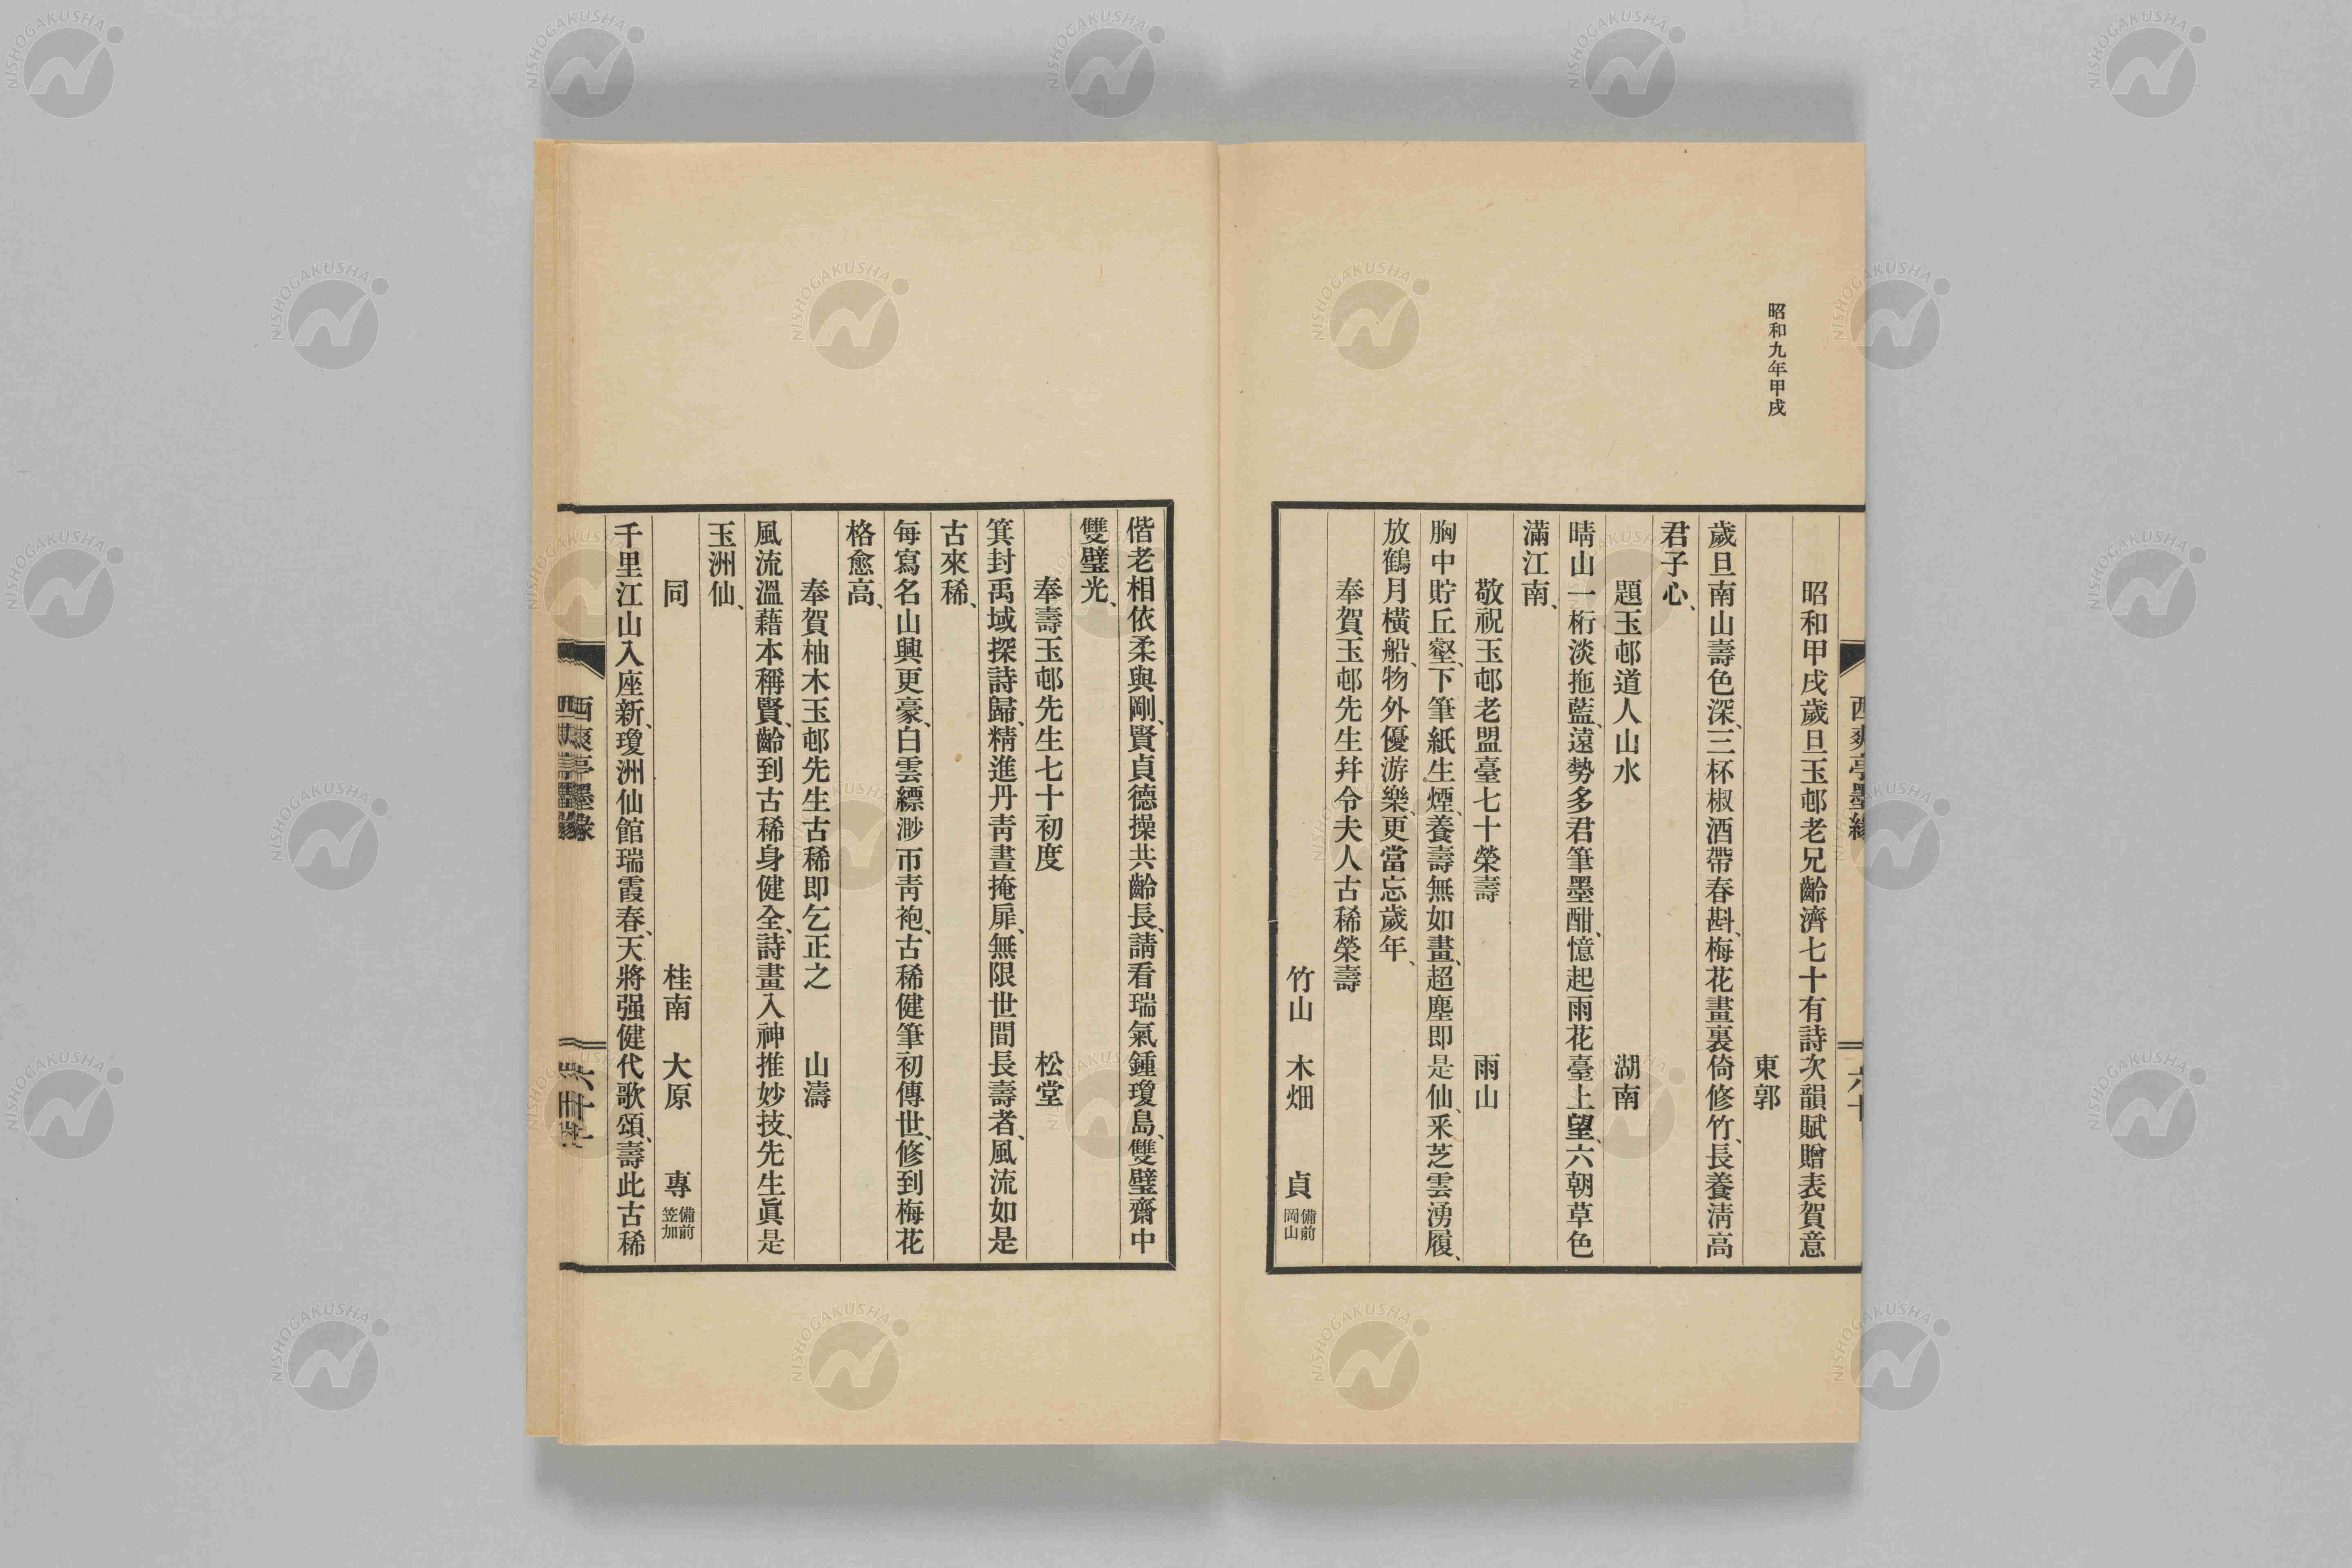 昭和九年甲戌
西爽亭墨緣
六十
昭和甲戌歲旦玉邨老兄齡濟七十有詩次韻賦贈表賀意
東郭
歲旦南山壽色深、三杯椒酒帶春斟、梅花畫裏倚修竹、長養淸高
君子心、
題玉邨道人山水　湖南
晴山一桁淡拖藍、遠勢多君筆墨酣、憶起雨花臺上望、六朝草色
滿江南、
敬祝玉邨老盟臺七十榮壽　雨山
胸中貯丘壑、下筆紙生煙、養壽無如畫、超塵即是仙、釆芝雲湧履、
放鶴月橫船、物外優游樂、更當忘歲年、
奉賀玉邨先生幷令夫人古稀榮壽
竹山　木畑　貞　備前岡山
偕老相依柔與剛、賢貞德操共齡長、請看瑞氣鍾瓊島、雙璧齋中
雙璧光、
奉壽玉邨先生七十初度　松堂
箕封禹域探詩歸、精進丹靑晝掩扉、無限世間長壽者、風流如是
古來稀、
每寫名山興更豪、白雲縹渺帀靑袍、古稀健筆初傳世、修到梅花
格愈高、
奉賀柚木玉邨先生古稀即乞正之　山濤
風流溫藉本稱賢、齡到古稀身健全、詩畫入神推妙技、先生眞是
玉洲仙、
同　桂南　大原　專　備前笠加
千里江山入座新、瓊洲仙館瑞霞春、天將强健代歌頌、壽此古稀
西爽亭墨緣
NISHOGAKUSHA